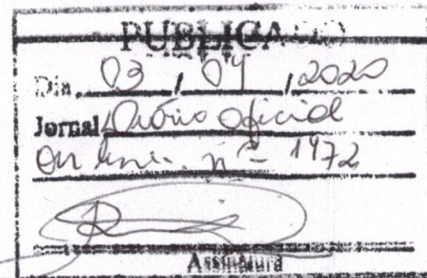 PUBLICADO
Dia 03 / 04 / 2020
Jornal Diário Oficial
On line nº - 1972
Assinatura